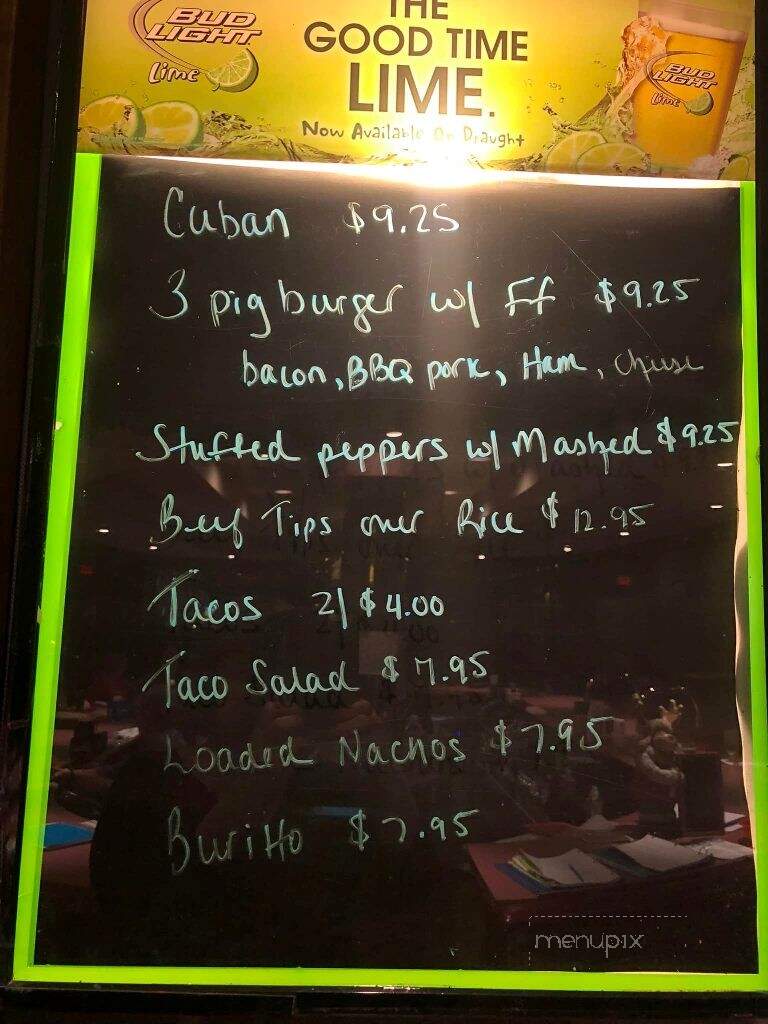 BUD
LIGHT
Lime
THE
GOOD TIME
LIME.
Now Available On Draught
BUD
LIGHT
Lime
Cuban $9.25
3 pig burger w/ FF $9.25
bacon, BBQ pork, Ham, Cheese
Stuffed peppers w/ Mashed $9.25
Beef Tips over Rice $12.95
Tacos 2/$4.00
Taco Salad $7.95
Loaded Nachos $7.95
Buritto $7.95
menupix